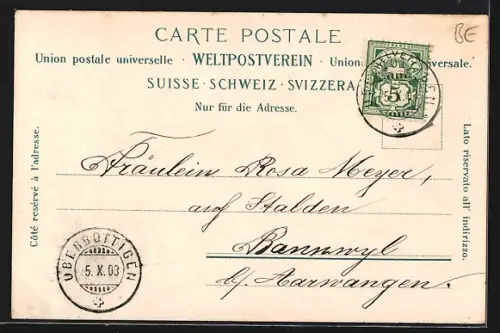 CARTE POSTALE
BE
Union postale universelle · WELTPOSTVEREIN · Union versale.
SUISSE · SCHWEIZ · SVIZZERA
Nur für die Adresse.
5
Côté reservé à l'adresse.
Lato riservato all' indirizzo.
Fräulein Rosa Meyer,
auf Stalden
Bannwyl
b/. Aarwangen.
OBERBOTTIGEN
5. X. 03